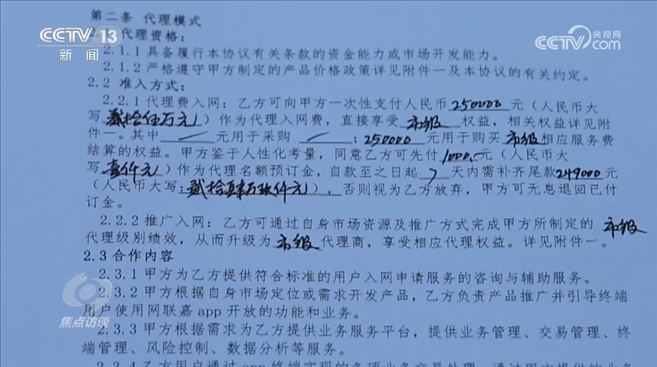 CCTV 13
新闻
央视网
CCTV.com
第二条 代理模式
代理资格：
2.1.1具备履行本协议有关条款的资金能力或市场开发能力。
2.1.2严格遵守甲方制定的产品价格政策详见附件一及本协议的有关约定。
2.2 准入方式：
2.2.1代理费入网：乙方可向甲方一次性支付人民币250000元（人民币大
写贰拾伍万元）作为代理入网费，直接享受市级权益，相关权益详见附
件一。其中 / 元用于采购 / ；250000元用于购买市级相应服务费
结算的权益。甲方鉴于人性化考量，同意乙方可先付1000元（人民币大
写壹仟元）作为代理名额预订金，自款至之日起7天内需补齐尾款249000元
（人民币大写：贰拾肆万玖仟元），否则视为乙方放弃，甲方可无息退回已付
订金。
2.2.2推广入网：乙方可通过自身市场资源及推广方式完成甲方所制定的市级
代理级别绩效，从而升级为市级代理商，享受相应代理权益。详见附件一。
2.3合作内容
2.3.1甲方为乙方提供符合标准的用户入网申请服务的咨询与辅助服务。
2.3.2甲方根据自身市场定位或需求开发产品，乙方负责产品推广并引导终端
用户使用网联嘉app开放的功能和业务。
2.3.3甲方根据需求为乙方提供业务服务平台，提供业务管理、交易管理、终
端管理、风险控制、数据分析等服务。
焦点访谈